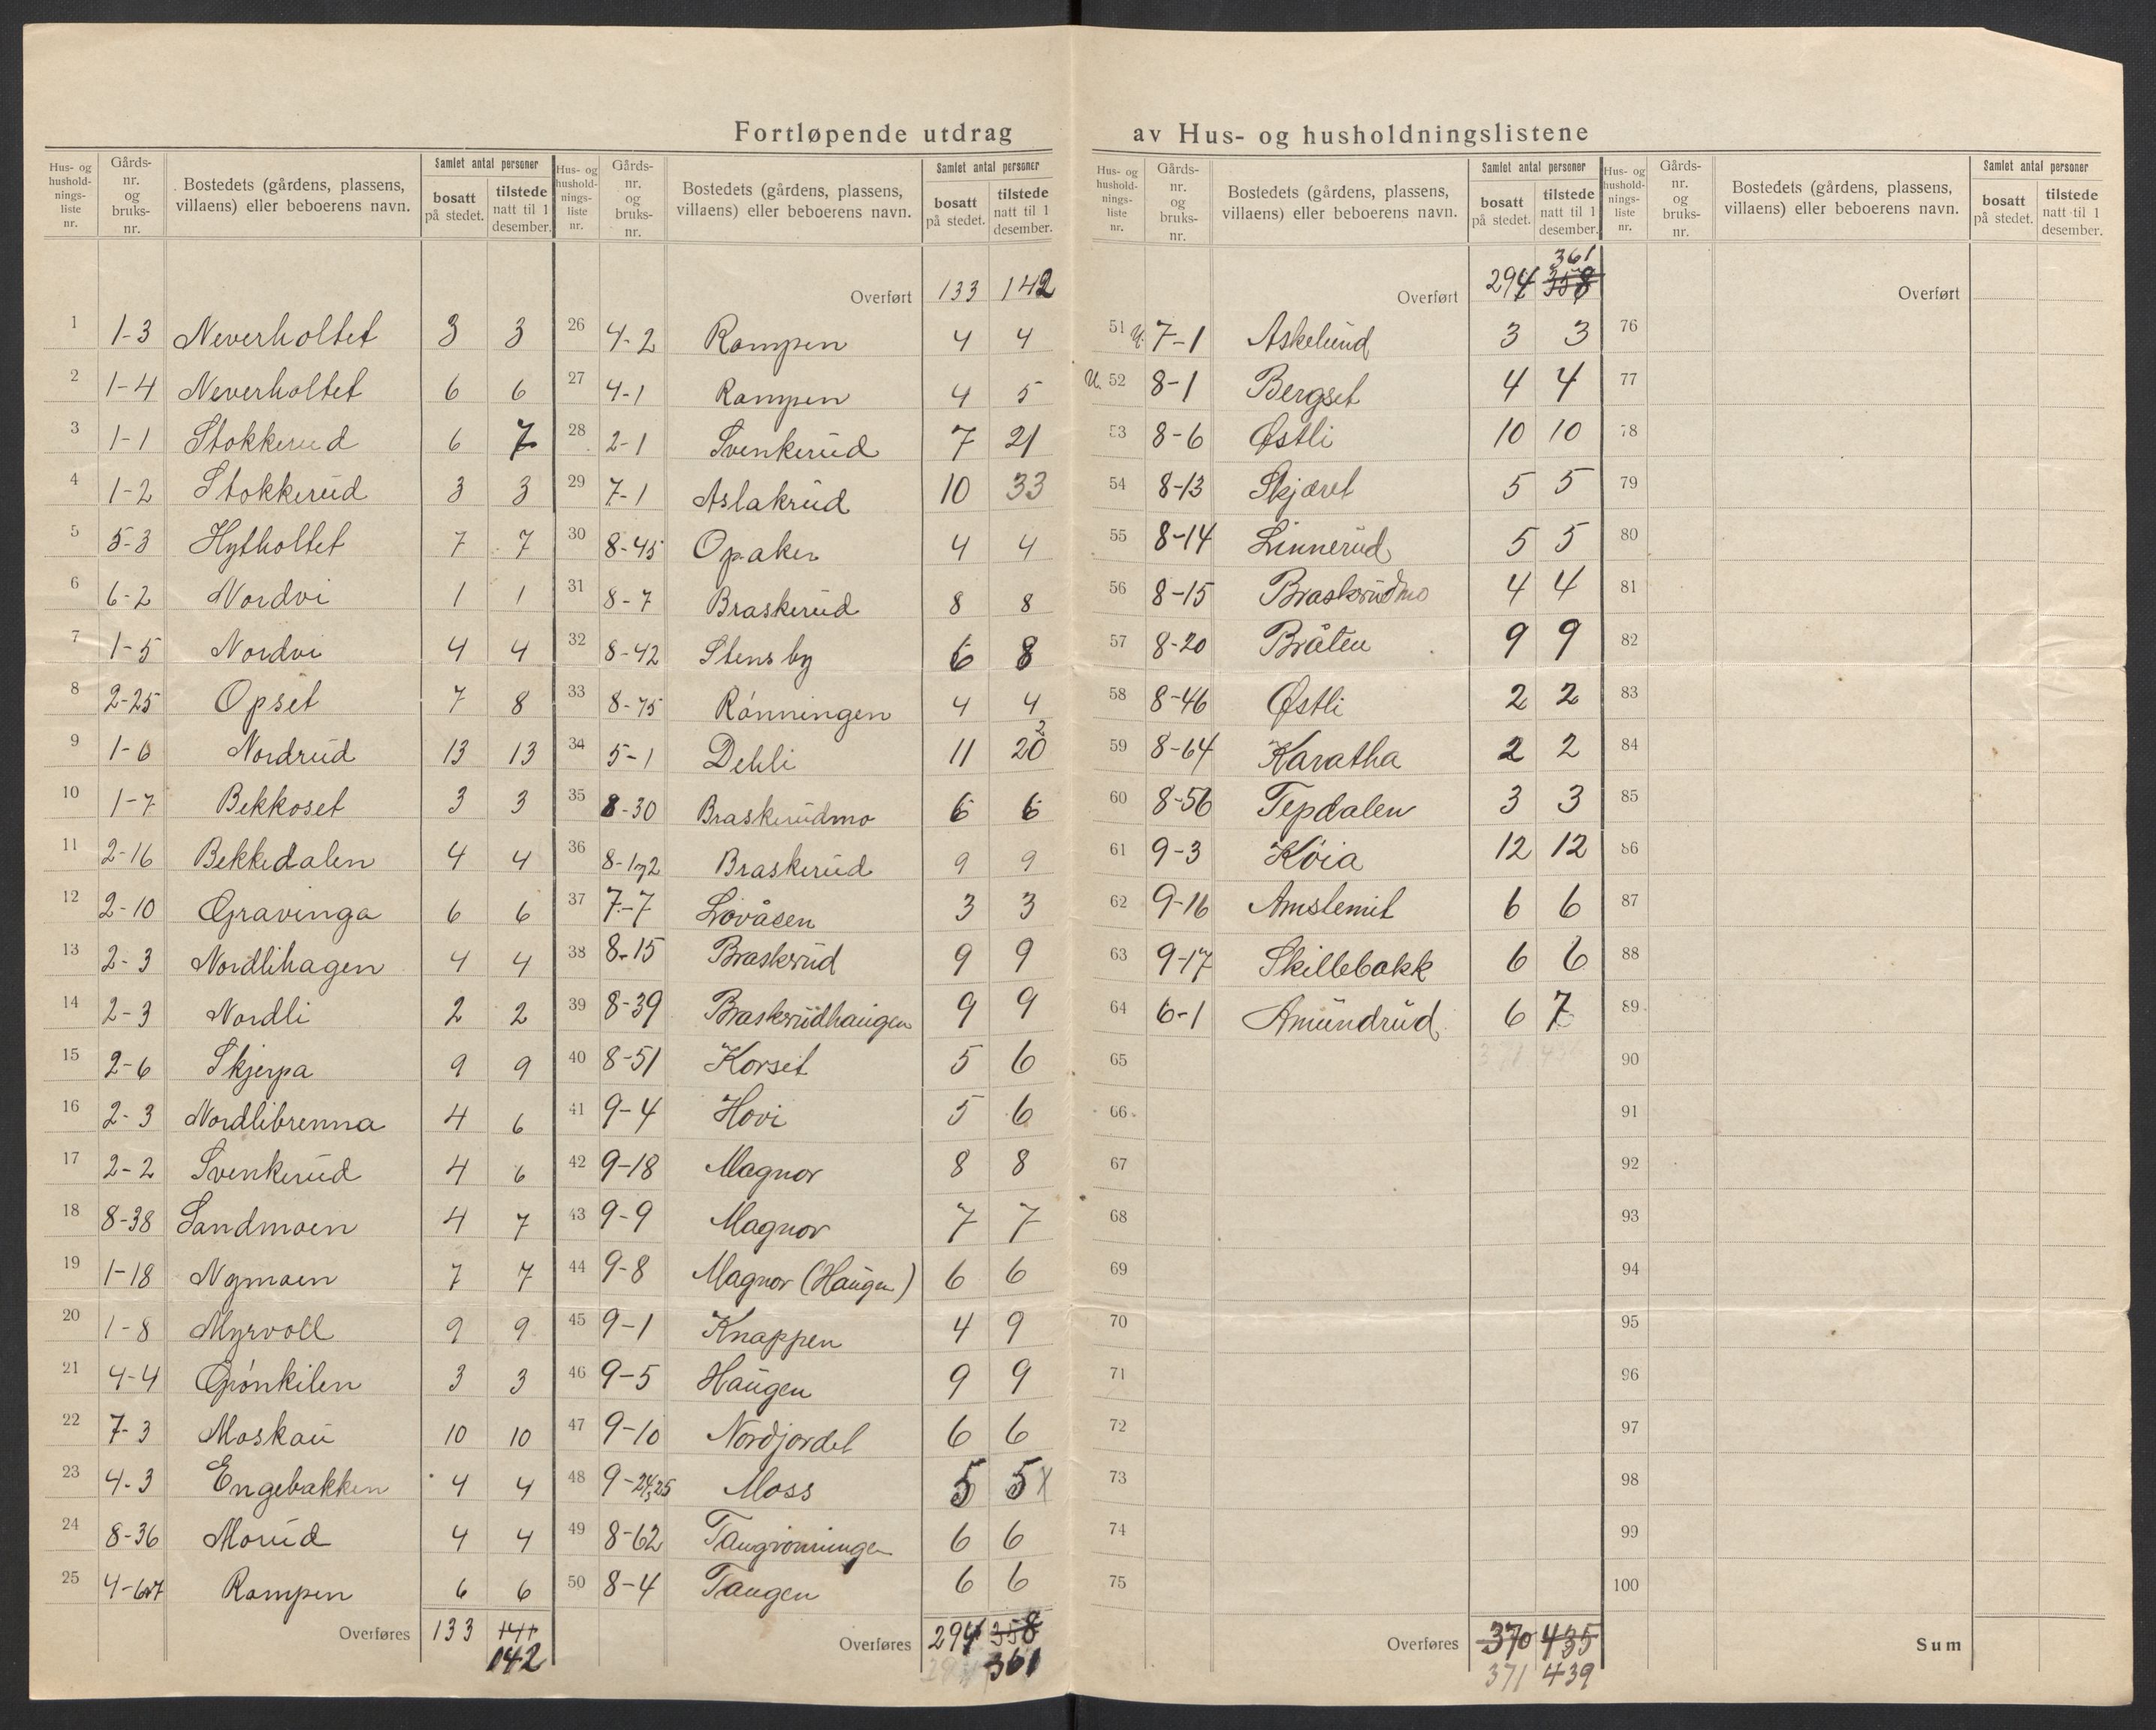 Fortløpende utdrag av Hus- og husholdningslistene
Hus- og hushold-nings-liste nr. Gårds-nr. og bruks-nr. Bostedets (gårdens, plassens, villaens) eller beboerens navn. Samlet antal personer bosatt på stedet. tilstede natt til 1 desember.
1 1-3 Neverholtet 3 3
2 1-4 Neverholtet 6 6
3 1-1 Stokkerud 6 7
4 1-2 Stokkerud 3 3
5 5-3 Hytholtet 7 7
6 6-2 Nordvi 1 1
7 1-5 Nordvi 4 4
8 2-25 Opset 7 8
9 1-6 Nordrud 13 13
10 1-7 Bekkoset 3 3
11 2-16 Bekkedalen 4 4
12 2-10 Gravinga 6 6
13 2-3 Nordlihagen 4 4
14 2-3 Nordli 2 2
15 2-6 Skjerpa 9 9
16 2-3 Nordlibrenna 4 6
17 2-2 Svenkerud 4 6
18 8-38 Sandmoen 4 7
19 1-18 Nymoen 7 7
20 1-8 Myrvoll 9 9
21 4-4 Grønkilen 3 3
22 7-3 Moskau 10 10
23 4-3 Engebakken 4 4
24 8-36 Morud 4 4
25 4-6o7 Rampen 6 6
Overføres 133 141
142
Hus- og hushold-nings-liste nr. Gårds-nr. og bruks-nr. Bostedets (gårdens, plassens, villaens) eller beboerens navn. Samlet antal personer bosatt på stedet. tilstede natt til 1 desember.
Overført 133 142
26 4-2 Rampen 4 4
27 4-1 Rampen 4 5
28 2-1 Svenkerud 7 21
29 7-1 Aslakrud 10 33
30 8-45 Opaker 4 4
31 8-7 Braskerud 8 8
32 8-42 Stensby 6 8
33 8-75 Rønningen 4 4
34 5-1 Dehli 11 20 2
35 8-30 Braskerudmo 6 6
36 8-1og2 Braskerud 9 9
37 7-7 Lovåsen 3 3
38 8-15 Braskrud 9 9
39 8-39 Braskrudhaugen 9 9
40 8-51 Korset 5 6
41 9-4 Hovi 5 6
42 9-18 Magnor 8 8
43 9-9 Magnor 7 7
44 9-8 Magnor (Haugen) 6 6
45 9-1 Knappen 4 9
46 9-5 Haugen 9 9
47 9-10 Nordjordet 6 6
48 9-24,25 Moss 5 5 x
49 8-62 Taugrønningen 6 6
50 8-4 Taugen 6 6
Overføres 294 358
361
Hus- og hushold-nings-liste nr. Gårds-nr. og bruks-nr. Bostedets (gårdens, plassens, villaens) eller beboerens navn. Samlet antal personer bosatt på stedet. tilstede natt til 1 desember.
361
Overført 294 358
51 U. 7-1 Askelund 3 3
U. 52 8-1 Bergset 4 4
53 8-6 Østli 10 10
54 8-13 Skjæret 5 5
55 8-14 Linnerud 5 5
56 8-15 Braskrudmo 4 4
57 8-20 Bråten 9 9
58 8-46 Østli 2 2
59 8-64 Karatha 2 2
60 8-56 Tepdalen 3 3
61 9-3 Køia 12 12
62 9-16 Amstemit 6 6
63 9-17 Skillebakk 6 6
64 6-1 Amundrud 6 7
65
66
67
68
69
70
71
72
73
74
75
Overføres 370 435
371 439
Hus- og hushold-nings-liste nr. Gårds-nr. og bruks-nr. Bostedets (gårdens, plassens, villaens) eller beboerens navn. Samlet antal personer bosatt på stedet. tilstede natt til 1 desember.
Overført
76
77
78
79
80
81
82
83
84
85
86
87
88
89
90
91
92
93
94
95
96
97
98
99
100
Sum